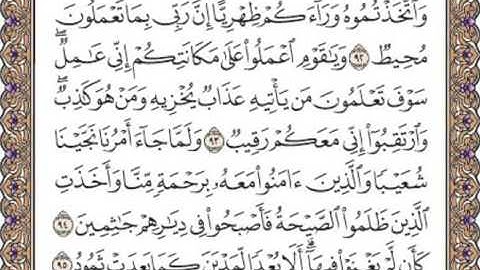 وَٱتَّخَذْتُمُوهُ وَرَآءَكُمْ ظِهْرِيًّا إِنَّ رَبِّى بِمَا تَعْمَلُونَ
مُحِيطٌ ٩٢ وَيَٰقَوْمِ ٱعْمَلُوا۟ عَلَىٰ مَكَانَتِكُمْ إِنِّى عَٰمِلٌ ۖ
سَوْفَ تَعْلَمُونَ مَن يَأْتِيهِ عَذَابٌ يُخْزِيهِ وَمَنْ هُوَ كَٰذِبٌ ۖ
وَٱرْتَقِبُوٓا۟ إِنِّى مَعَكُمْ رَقِيبٌ ٩٣ وَلَمَّا جَآءَ أَمْرُنَا نَجَّيْنَا
شُعَيْبًا وَٱلَّذِينَ ءَامَنُوا۟ مَعَهُۥ بِرَحْمَةٍ مِّنَّا وَأَخَذَتِ
ٱلَّذِينَ ظَلَمُوا۟ ٱلصَّيْحَةُ فَأَصْبَحُوا۟ فِى دِيَٰرِهِمْ جَٰثِمِينَ ٩٤
كَأَن لَّمْ يَغْنَوْا۟ فِيهَآ ۗ أَلَا بُعْدًا لِّمَدْيَنَ كَمَا بَعِدَتْ ثَمُودُ ٩٥